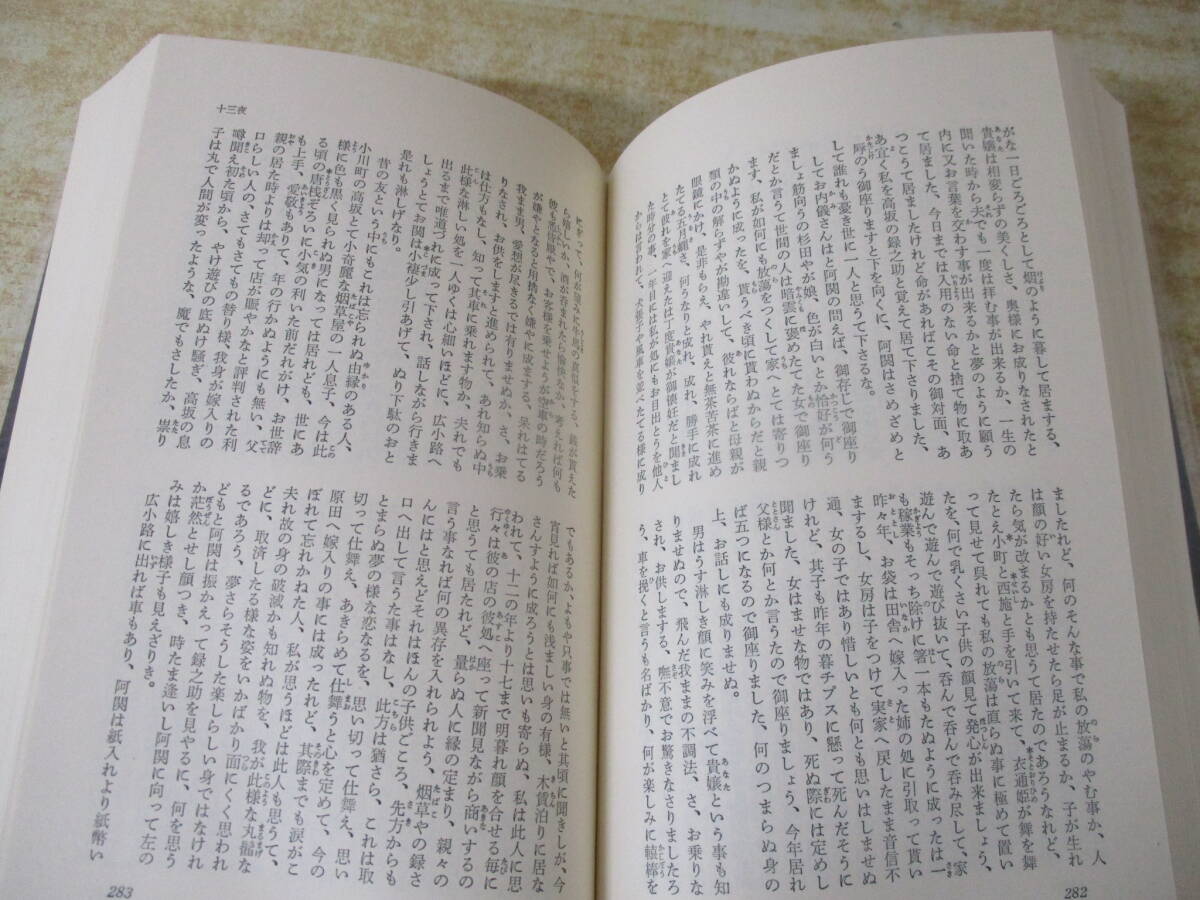 がな一日ごろごろとして烟のように暮して居まする、
貴嬢は相変らずの美くしさ、奥様にお成りなされたと
聞いた時から夫でも一度は拝む事が出来るか、一生の
内に又お言葉を交わす事が出来るかと夢のように願う
て居ました、今日までは入用のない命と捨て物に取あ
つこうて居ましたけれど命があればこその御対面、あ
あ宜く私を高坂の録之助と覚えて居て下さりました、
辱のう御座りますと下を向くに、阿関はさめざめと
して誰れも憂き世に一人と思うて下さるな。
してお内儀さんはと阿関の問えば、御存じで御座り
ましょ筋向うの杉田やが娘、色が白いとか恰好が何う
だとか言うて世間の人は暗雲に褒めたてた女で御座り
ます、私が如何にも放蕩をつくして家へとては寄りつ
かぬように成ったを、貰うべき頃に貰わぬからだと親
類の中の解らずやが勘違いして、彼れならばと母親が
眼鏡にかけ、是非もらえ、やれ貰えと無茶苦茶に進め
たてる五月蠅さ、何うなりと成れ、成れ、勝手に成れ
とて彼れを家へ迎えたは丁度貴嬢が御懐妊だと聞まし
た時分の事、一年目には私が処にもお目出とうを他人
からは言われて、犬張子や風車を並べたてる様に成り
ましたれど、何のそんな事で私の放蕩のやむ事か、人
は顔の好い女房を持たせたら足が止まるか、子が生れ
たら気が改まるかとも思うて居たのであろうなれど、
たとえ小町と西施と手を引いて来て、衣通姫が舞を舞
って見せて呉れても私の放蕩は直らぬ事に極めて置い
たを、何で乳くさい子供の顔見て発心が出来ましょう、
遊んで遊んで遊び抜いて、呑んで呑んで呑み尽して、家
も稼業もそっち除けに箸一本もたぬように成ったは一
昨々年、お袋は田舎へ嫁入った姉の処に引取って貰い
まするし、女房は子をつけて実家へ戻したまま音信不
通、女の子ではあり惜しいとも何とも思いはしませぬ
けれど、其子も昨年の暮チプスに懸って死んだそうに
聞ました、女はませな物ではあり、死ぬ際には定めし
父様とか何とか言うたので御座りましょう、今年居れ
ば五つになるので御座りました、何のつまらぬ身の
上、お話しにも成りませぬ。
男はうす淋しき顔に笑みを浮べて貴嬢という事も知
りませぬので、飛んだ我ままの不調法、さ、お乗りな
され、お供しまする、嘸不意でお驚きなさりましたろ
う、車を挽くと言うも名ばかり、何が楽しみに轅棒を
282
十三夜
にぎって、何が望みに牛馬の真似をする、銭が貰えた
ら嬉しいか、酒が呑まれたら愉快なか、考えれば何も
彼も悉皆厭やで、お客様を乗せようが空車の時だろう
が嫌やとなると用捨なく嫌やに成まする、呆れはてる
我まま男、愛想が尽きるでは有りませぬか、さ、お乗
りなされ、お供をしますと進められて、あれ知らぬ中
は仕方もなし、知って其車に乗れます物か、夫れでも
此様な淋しい処を一人ゆくは心細いほどに、広小路へ
出るまで唯道づれに成って下され、話しながら行きま
しょうとてお関は小褄少し引あげて、ぬり下駄のおと
是れも淋しげなり。
昔の友という中にもこれは忘られぬ由縁のある人、
小川町の高坂とて小奇麗な烟草屋の一人息子、今は此
様に色も黒く見られぬ男になっては居れども、世にあ
る頃の唐桟ぞろいに小気の利いた前だれがけ、お世辞
も上手、愛敬もありて、年の行かぬようにも無い、父
親の居た時よりは却って店が賑やかなと評判された利
口らしい人の、さてもさてもの替り様、我身が嫁入りの
噂聞え初た頃から、やけ遊びの底ぬけ騒ぎ、高坂の息
子は丸で人間が変ったような、魔でもさしたか、祟り
でもあるか、よもや只事では無いと其頃に聞きしが、今
宵見れば如何にも浅ましい身の有様、木賃泊りに居な
さんすように成ろうとは思いも寄らぬ、私は此人に思
われて、十二の年より十七まで明暮れ顔を合せる毎に
行々は彼の店の彼処へ座って新聞見ながら商いするの
と思うても居たれど、量らぬ人に縁の定まり、親々の
言う事なれば何の異存を入れられよう、烟草やの録さ
んにはと思えどそれはほんの子供ごころ、先方からも
口へ出して言うた事はなし、此方は猶さら、これは取
とまらぬ夢の様な恋なるを、思い切って仕舞え、思い
切って仕舞え、あきらめて仕舞うと心を定めて、今の
原田へ嫁入りの事には成ったれど、其際までも涙がこ
ぼれて忘れかねた人、私が思うほどは此人も思うて、
夫れ故の身の破滅かも知れぬ物を、我が此様な丸髷な
どに、取済したる様な姿をいかばかり面にくく思われ
るであろう、夢さらそうした楽しらしい身ではなけれ
どもと阿関は振かえって録之助を見やるに、何を思う
か茫然とせし顔つき、時たま逢いし阿関に向って左の
みは嬉しき様子も見えざりき。
広小路に出れば車もあり、阿関は紙入れより紙幣い
283